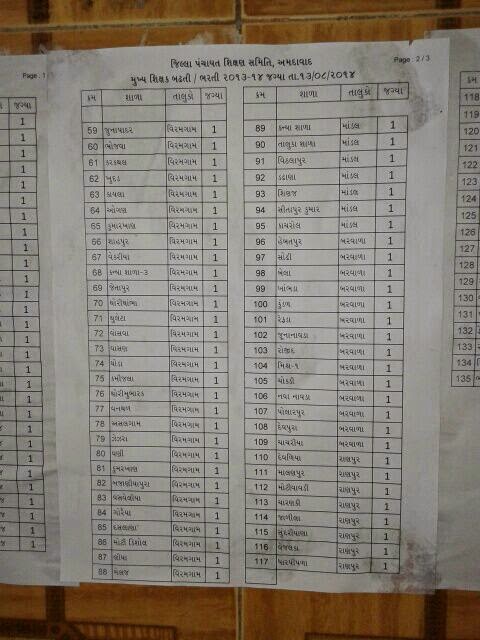 જિલ્લા પંચાયત શિક્ષણ સમિતિ, અમદાવાદ
Page : 2 / 3
મુખ્ય શિક્ષક બઢતી / ભરતી ૨૦૧૩-૧૪ જગ્યા તા.૧૩/૦૮/૨૦૧૪
ક્રમ શાળા તાલુકો જગ્યા
59 જુનાપાદર વિરમગામ 1
60 ભોજવા વિરમગામ 1
61 કરકથલ વિરમગામ 1
62 ખુદડ વિરમગામ 1
63 કાયલા વિરમગામ 1
64 ઓગણ વિરમગામ 1
65 કુમારખાણ વિરમગામ 1
66 શાહપુર વિરમગામ 1
67 વેકરીયા વિરમગામ 1
68 કન્યા શાળા-૩ વિરમગામ 1
69 જેતાપુર વિરમગામ 1
70 થોરીથાંભા વિરમગામ 1
71 થુલેટા વિરમગામ 1
72 વાસવા વિરમગામ 1
73 વાસણ વિરમગામ 1
74 થોડા વિરમગામ 1
75 કમીજલા વિરમગામ 1
76 થોરીમુબારક વિરમગામ 1
77 વનથળ વિરમગામ 1
78 અસલગામ વિરમગામ 1
79 ઝેઝરા વિરમગામ 1
80 વણી વિરમગામ 1
81 કુમરખાણ વિરમગામ 1
82 બજાણીયાપુરા વિરમગામ 1
83 વસવેલીયા વિરમગામ 1
84 ગોરૈયા વિરમગામ 1
85 દસલાણા વિરમગામ 1
86 મોટી કિશોલ વિરમગામ 1
87 લીયા વિરમગામ 1
88 મેલજ વિરમગામ 1
ક્રમ શાળા તાલુકો જગ્યા
89 કન્યા શાળા માંડલ 1
90 તાલુકા શાળા માંડલ 1
91 વિઠલાપુર માંડલ 1
92 ઢેઢાણા માંડલ 1
93 શિણજ માંડલ 1
94 સીતાપુર કુમાર માંડલ 1
95 કાચરોલ માંડલ 1
96 હેબતપુર બરવાળા 1
97 સોઢી બરવાળા 1
98 બેલા બરવાળા 1
99 ખાંભડા બરવાળા 1
100 કુંડળ બરવાળા 1
101 રેફડા બરવાળા 1
102 જુનાનાવડા બરવાળા 1
103 રોજીદ બરવાળા 1
104 મિશ્ર-૧ બરવાળા 1
105 ચોકડી બરવાળા 1
106 નવા નાવડા બરવાળા 1
107 પોલારપુર બરવાળા 1
108 દેવપુરા બરવાળા 1
109 ચાચરીયા બરવાળા 1
110 દેવળિયા રાણપુર 1
111 માલણપુર રાણપુર 1
112 મોટીવાવડી રાણપુર 1
113 ચારણકી રાણપુર 1
114 જાળીલા રાણપુર 1
115 સુંદરીયાણા રાણપુર 1
116 વેજલકા રાણપુર 1
117 ધારપીપળા રાણપુર 1
Page : 1
જગ્યા
ક્રમ
118
119
120
121
122
123
124
125
126
127
128
129
130
131
132
133
134
135